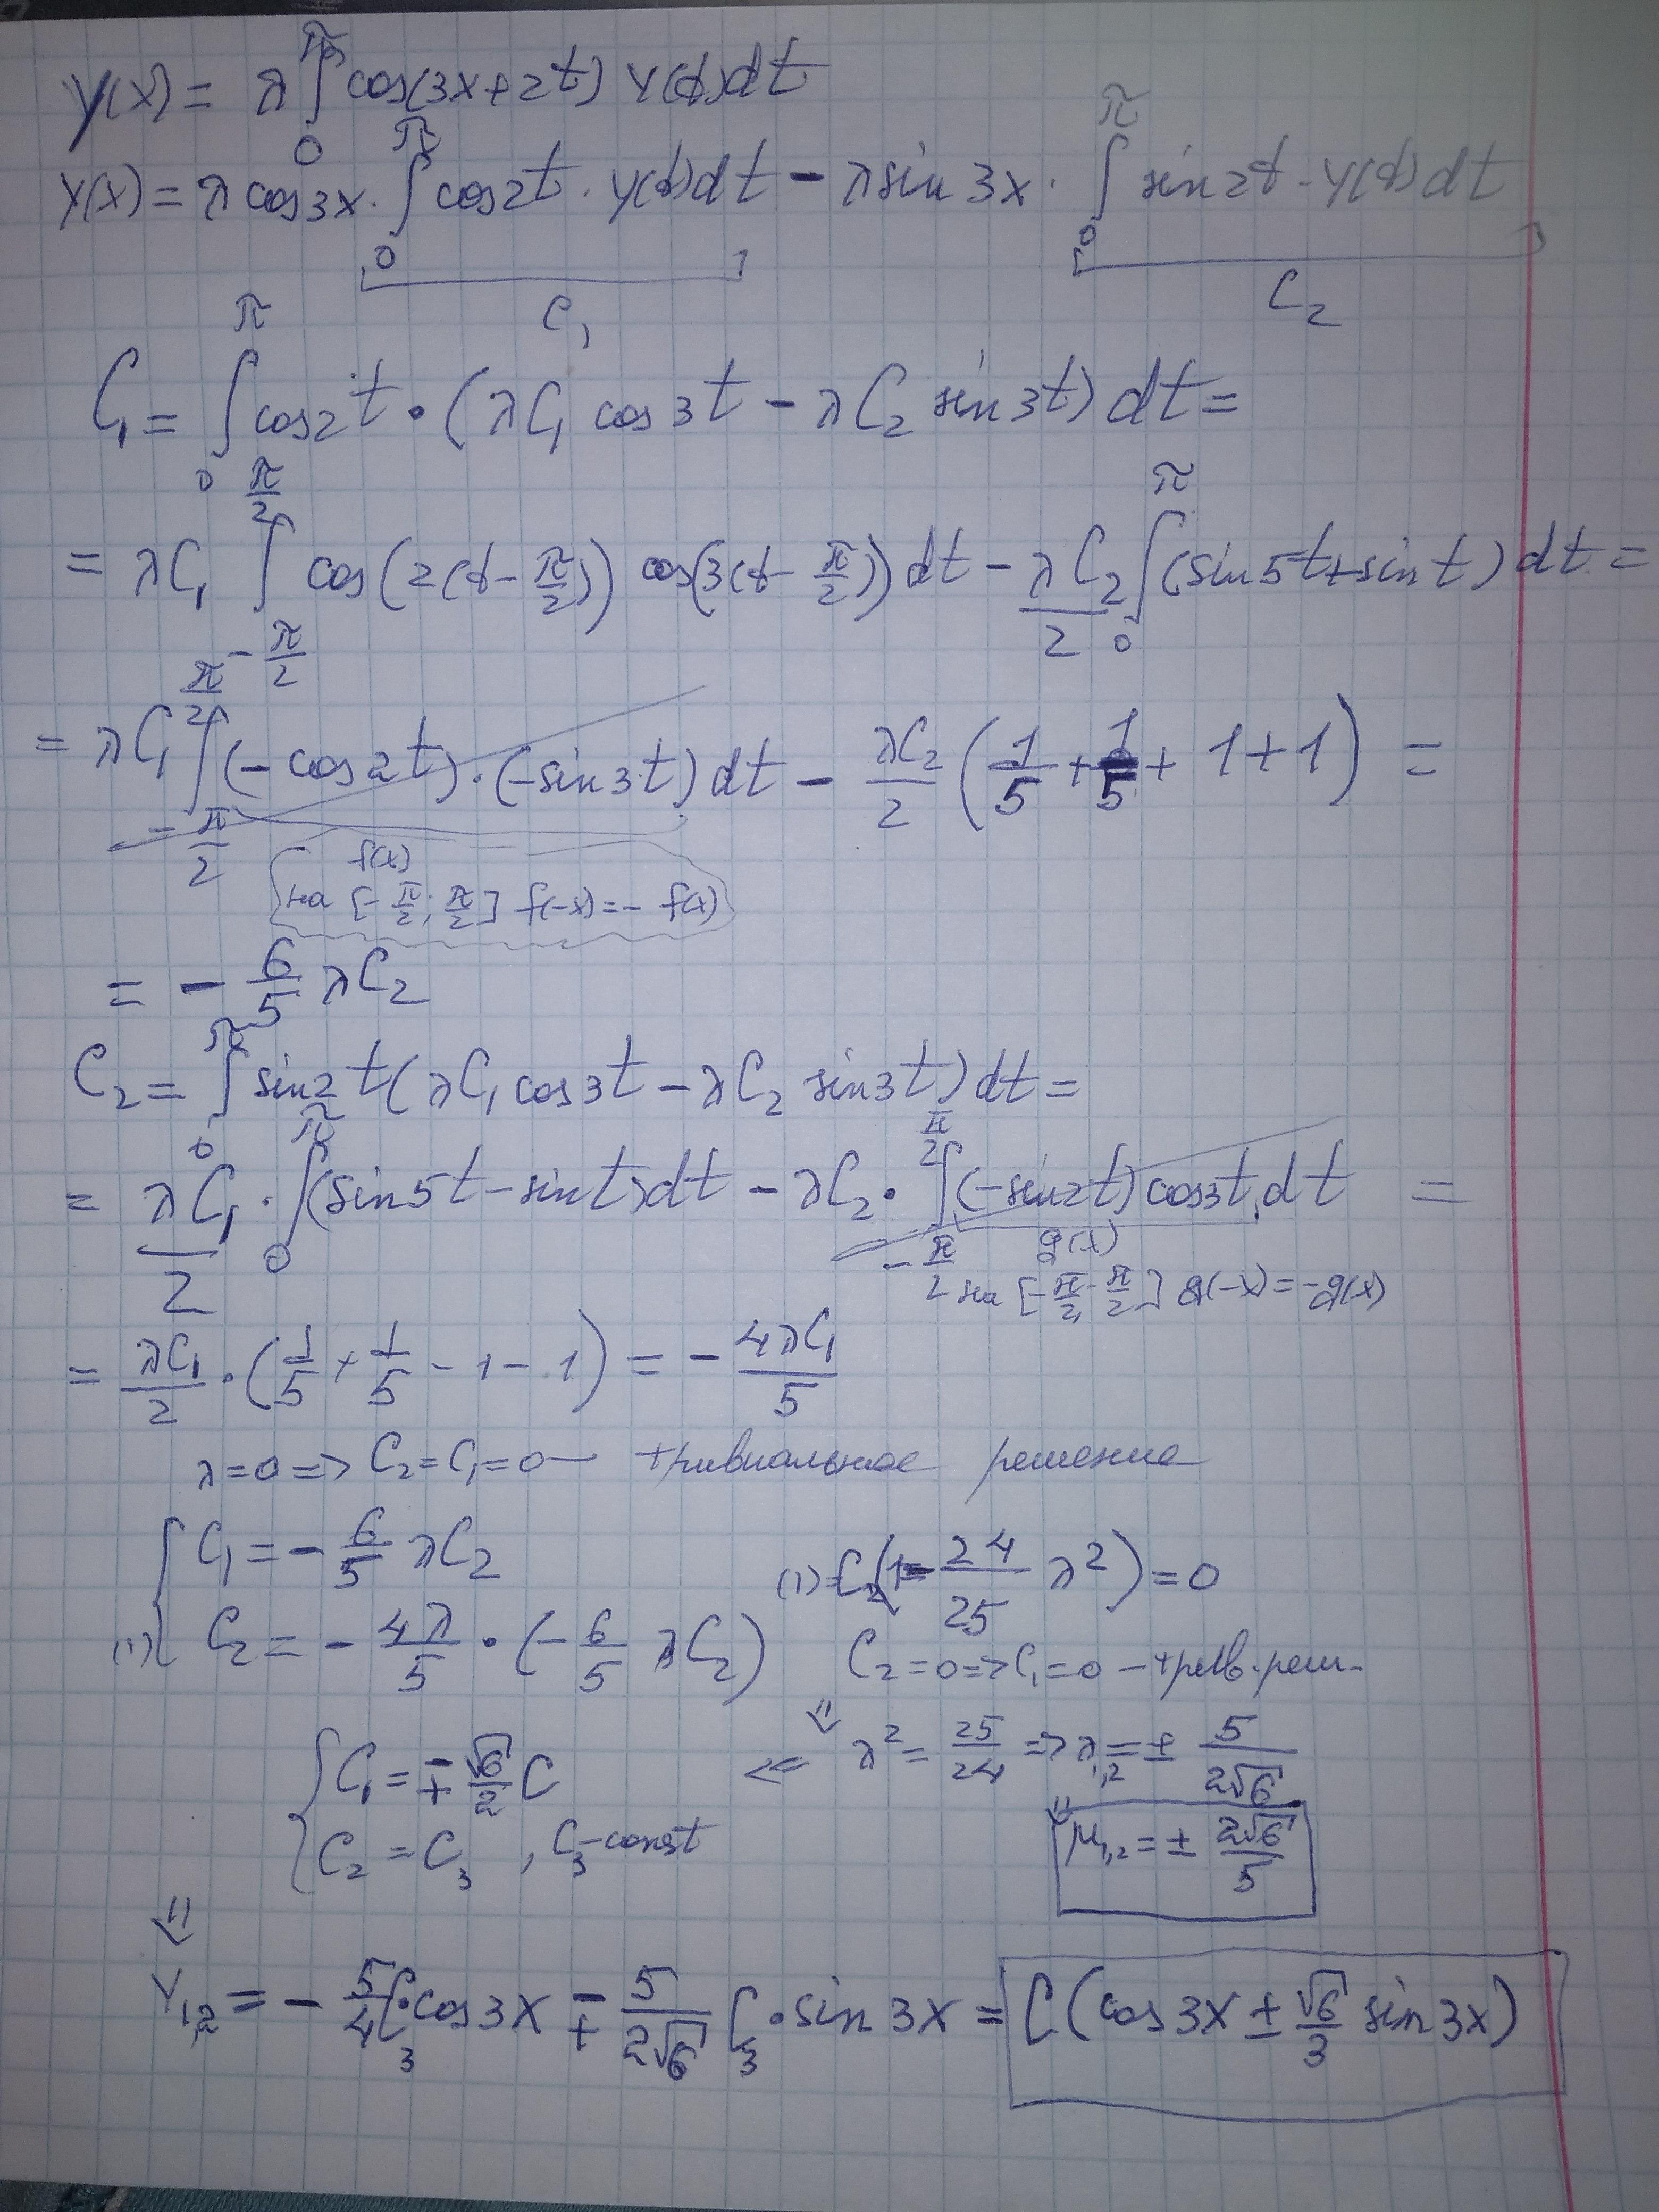 y(x) = λ∫₀^π cos(3x+2t) y(t)dt
y(x) = λ cos3x · ∫₀^π cos2t · y(t)dt − λ sin 3x · ∫₀^π sin2t · y(t)dt
C₁ C₂
C₁ = ∫₀^π cos2t · (λC₁ cos3t − λC₂ sin3t) dt =
= λC₁ ∫_{−π/2}^{π/2} cos(2(t−π/2)) cos(3(t−π/2)) dt − λC₂/2 ∫₀^π (sin5t+sint) dt =
= λC₁ ∫_{−π/2}^{π/2} (−cos2t)·(−sin3t) dt − λC₂/2 (1/5 + 1/5 + 1+1) =
f(x)
на [−π/2; π/2] f(−x) = −f(x)
= − 6/5 λC₂
C₂ = ∫₀^π sin2t(λC₁ cos3t − λC₂ sin3t) dt =
= λC₁/2 · ∫₀^π (sin5t − sint)dt − λC₂ · ∫_{−π/2}^{π/2} (−sin2t) cos3t dt =
g(x)
на [−π/2; π/2] g(−x) = −g(x)
= λC₁/2 · (1/5 + 1/5 − 1 − 1) = − 4λC₁/5
λ=0 => C₂=C₁=0 — тривиальное решение
{ C₁ = − 6/5 λC₂
(1) C₂ = − 4λ/5 · (− 6/5 λC₂) (1) = C₂(1 − 24/25 λ²) = 0
C₂=0 => C₁=0 − трив. реш.
{ C₁ = ∓ √6/2 C <= λ² = 25/24 => λ₁,₂ = ± 5/(2√6)
C₂ = C₃ , C₃−const μ₁,₂ = ± 2√6/5
⇓
y₁,₂ = − 5/4 C₃ · cos3x ∓ 5/(2√6) C₃ · sin 3x = C(cos3x ± √6/3 sin3x)